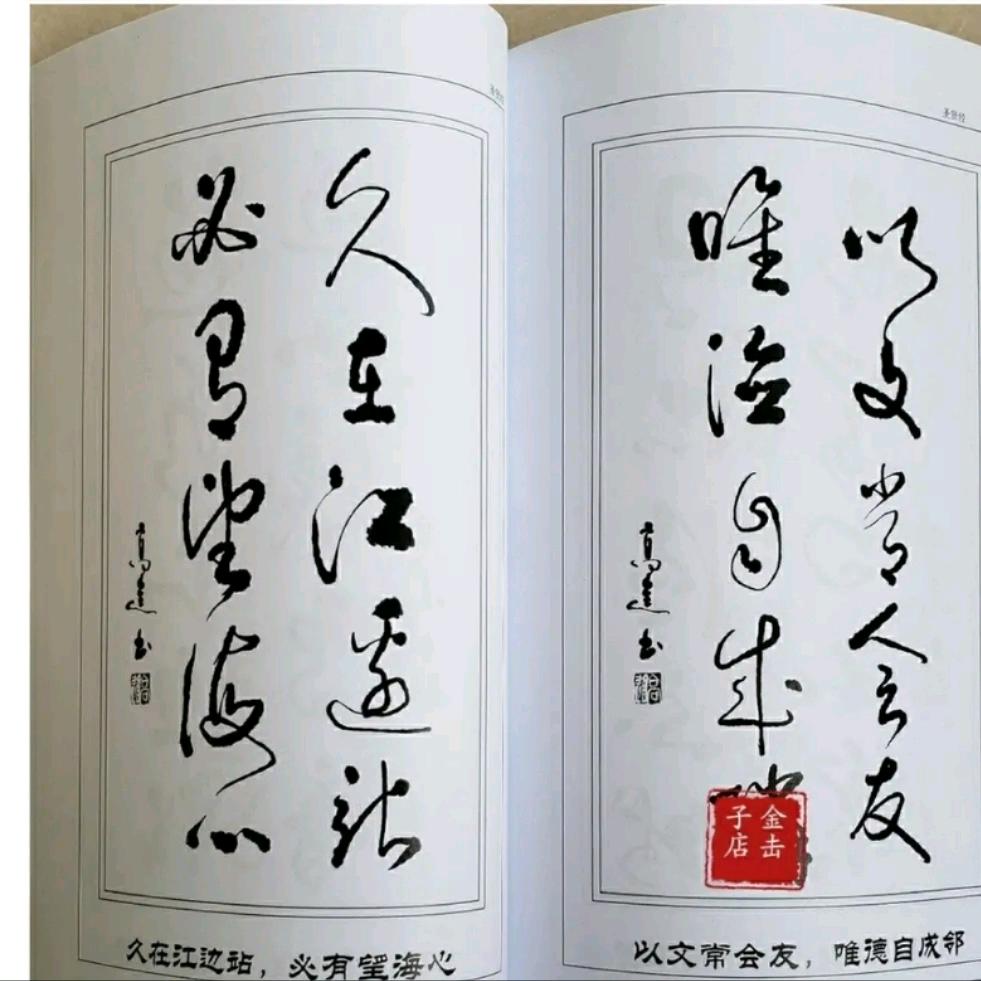 久在江邊站
必有望海心
久在江边站，必有望海心
以文常会友
唯德自成
金击
子店
以文常会友，唯德自成邻